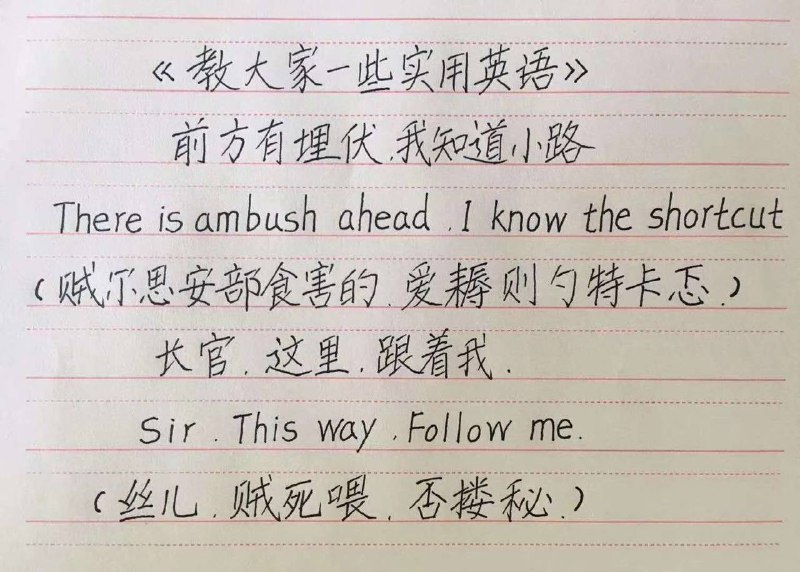 《教大家一些实用英语》
前方有埋伏.我知道小路
There is ambush ahead . I know the shortcut
(贼尔思安部食害的.爱耨则勺特卡忑.)
长官.这里.跟着我.
Sir . This way . Follow me.
(丝儿.贼死喂.否搂秘.)